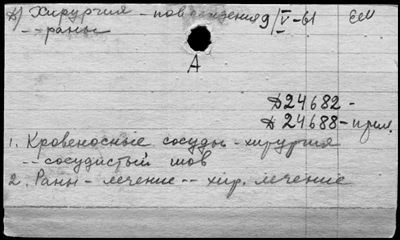 Д) Хирургия - повреждения 9/V-61
-- раны
А
Д24682 -
Д24688 - прил.
1. Кровеносные сосуды - хирургия
-- сосудистый шов
2. Раны - лечение -- хир. лечение